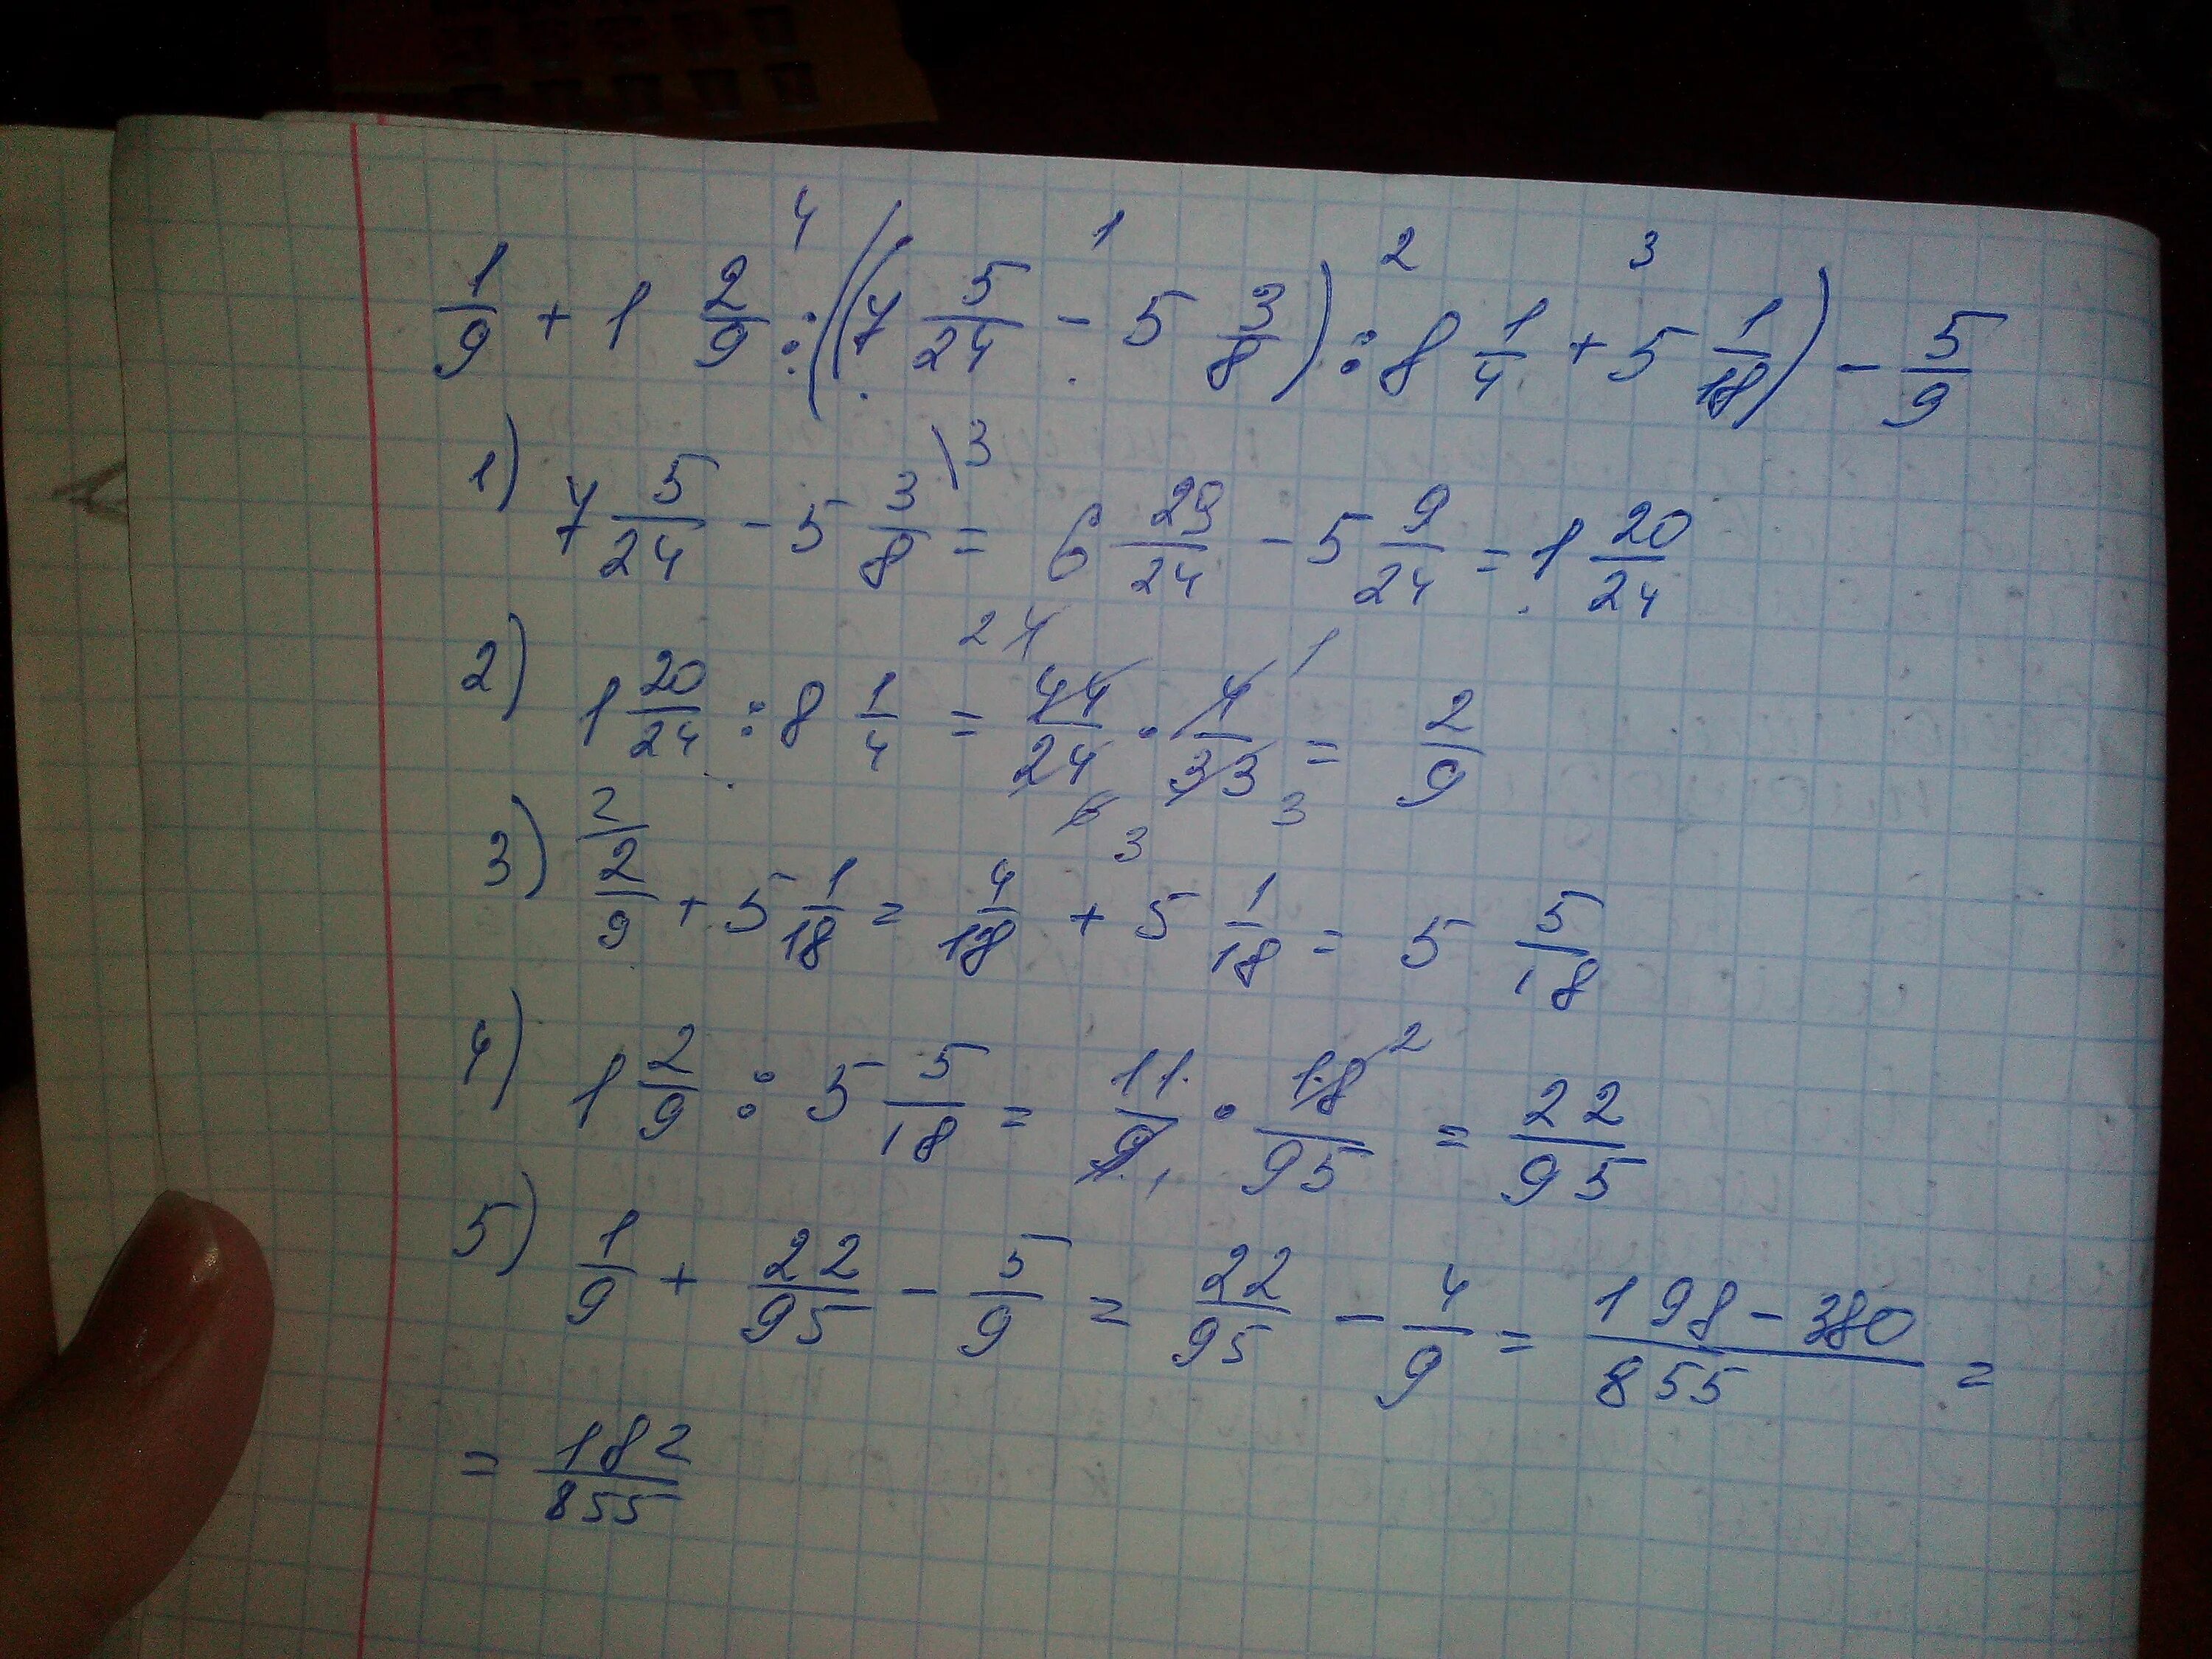 4 1 2 3
1/9 + 1 2/9 : ((7 5/24 - 5 3/8) : 8 1/4 + 5 1/18) - 5/9
1) 7 5/24 - 5 3/8 \3 = 6 29/24 - 5 9/24 = 1 20/24
2) 1 20/24 : 8 1/4 = 44/24 · 4/33 = 2/9
3) 2/ 2/9 + 5 1/18 = 4/18 + 5 1/18 = 5 5/18
4) 1 2/9 : 5 5/18 = 11/9 · 18/95 = 22/95
5) 1/9 + 22/95 - 5/9 = 22/95 - 4/9 = 198 - 380/855 =
= 182/855